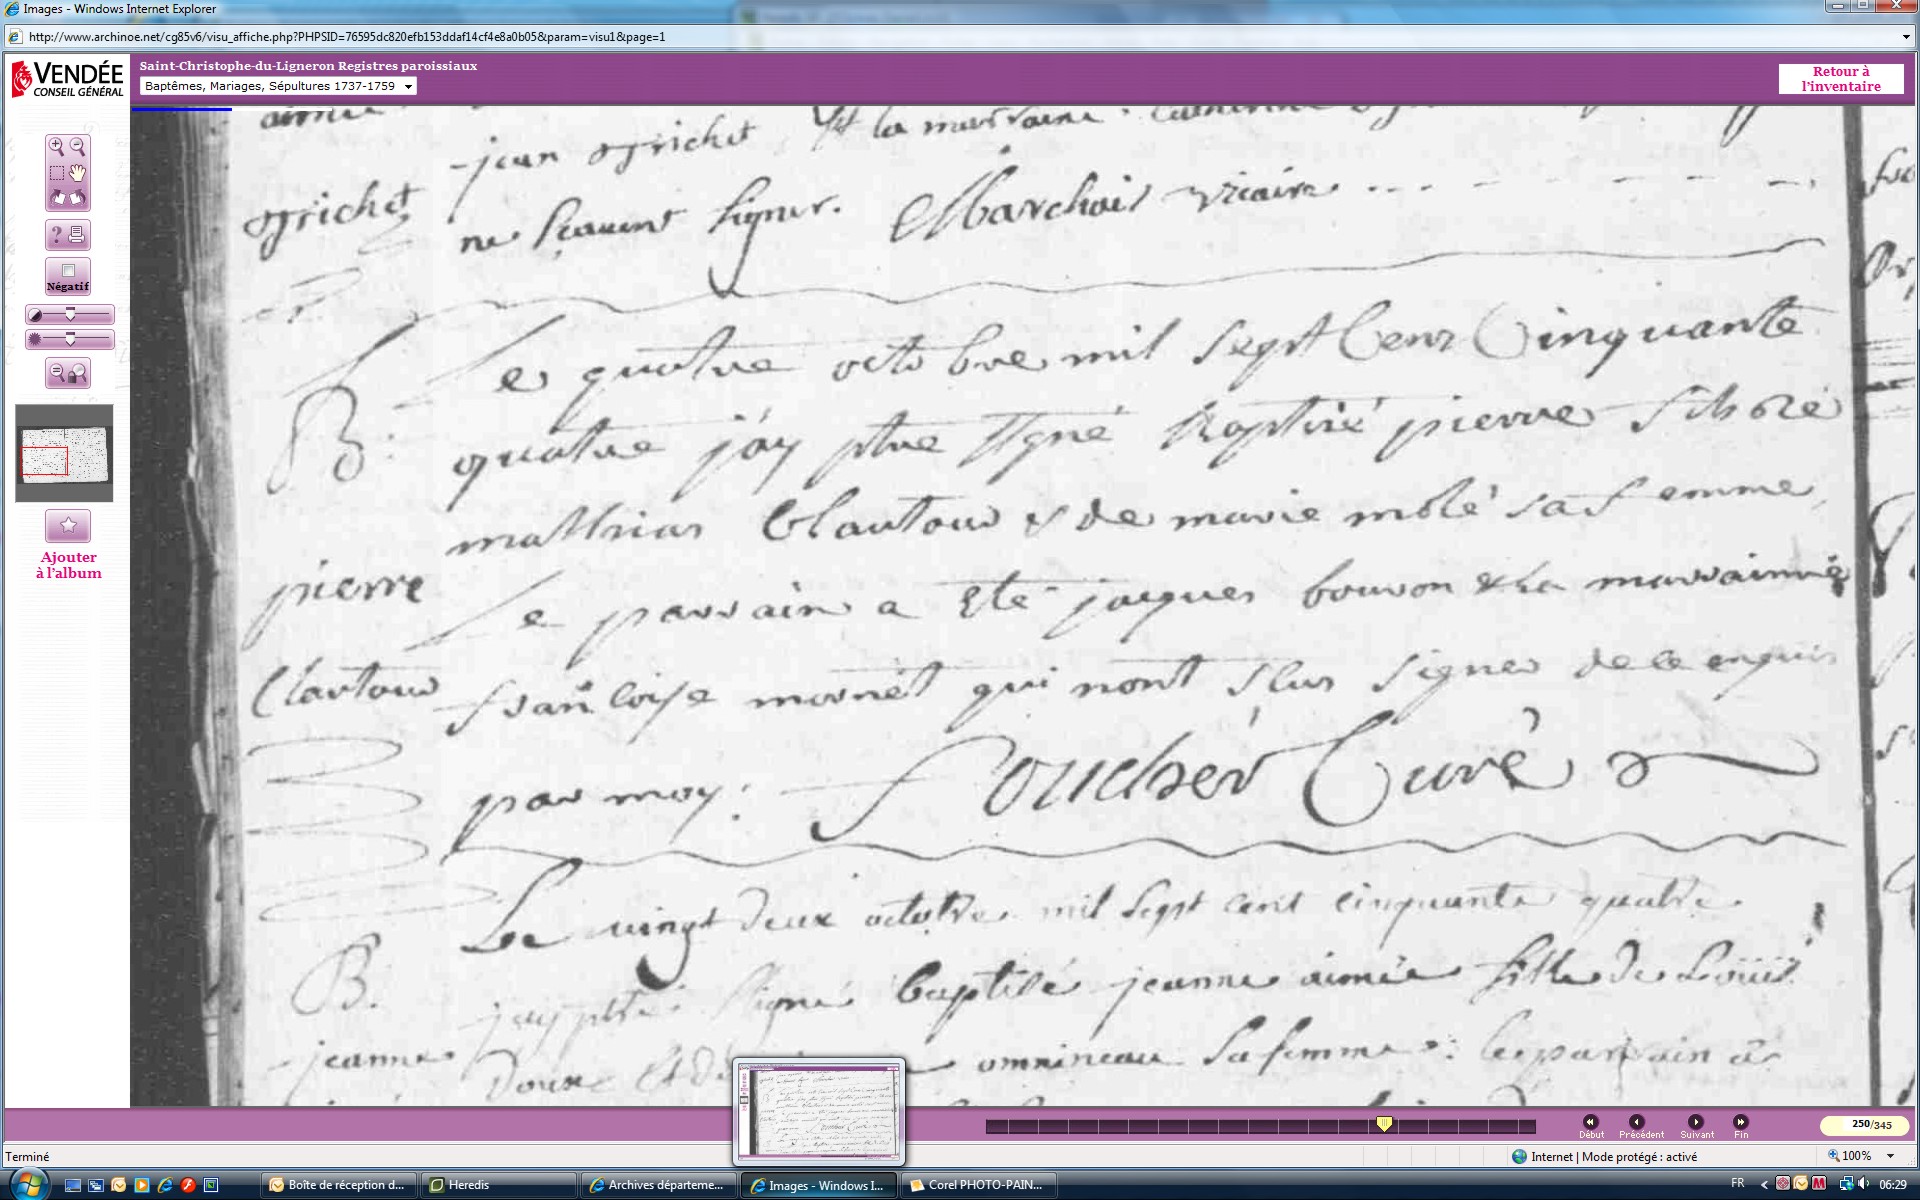 Images - Windows Internet Explorer
http://www.archinoe.net/cg85v6/visu_affiche.php?PHPSID=76595dc820efb153ddaf14cf4e8a0b05&param=visu1&page=1
VENDÉE
CONSEIL GÉNÉRAL
Saint-Christophe-du-Ligneron Registres paroissiaux
Baptêmes, Mariages, Sépultures 1737-1759
Retour à
l'inventaire
Négatif
Ajouter
à l'album
jean grichet & la marraine
grichet
ne sçavent signer. Marchais vicaire
Le quatre octobre mil sept Cent Cinquante
B.
quatre j'ay ptre signé Baptisé pierre
mathias Clautour & de marie molé sa femme
pierre
Le parrain a Eté jacques bouron & la marrainne
Clautour
françoise mornet qui nont signer de ce enquis
par moy: Boucher Curé
Le vingt deux octobre mil sept cent cinquante quatre
B.
jay ptre signé baptisé jeanne aimée fille de Loüis
jeanne
omnineau sa femme: le parrain a
Début
Précédent
Suivant
Fin
250/345
Terminé
Internet | Mode protégé : activé
100%
Boîte de réception d...
Heredis
Archives départeme...
Images - Windows I...
Corel PHOTO-PAIN...
FR
06:29